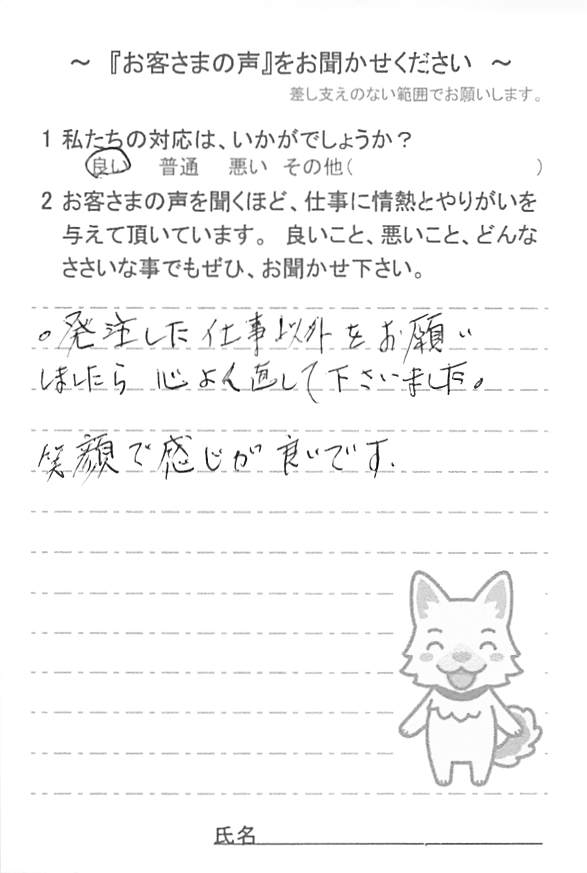 ～ 『お客さまの声』をお聞かせください ～
差し支えのない範囲でお願いします。
1 私たちの対応は、いかがでしょうか？
良い 普通 悪い その他( )
2 お客さまの声を聞くほど、仕事に情熱とやりがいを
与えて頂いています。 良いこと、悪いこと、どんな
ささいな事でもぜひ、お聞かせ下さい。
。発注した仕事以外をお願い
しましたら 心よく直して下さいました。
笑顔で感じが良いです.
氏名